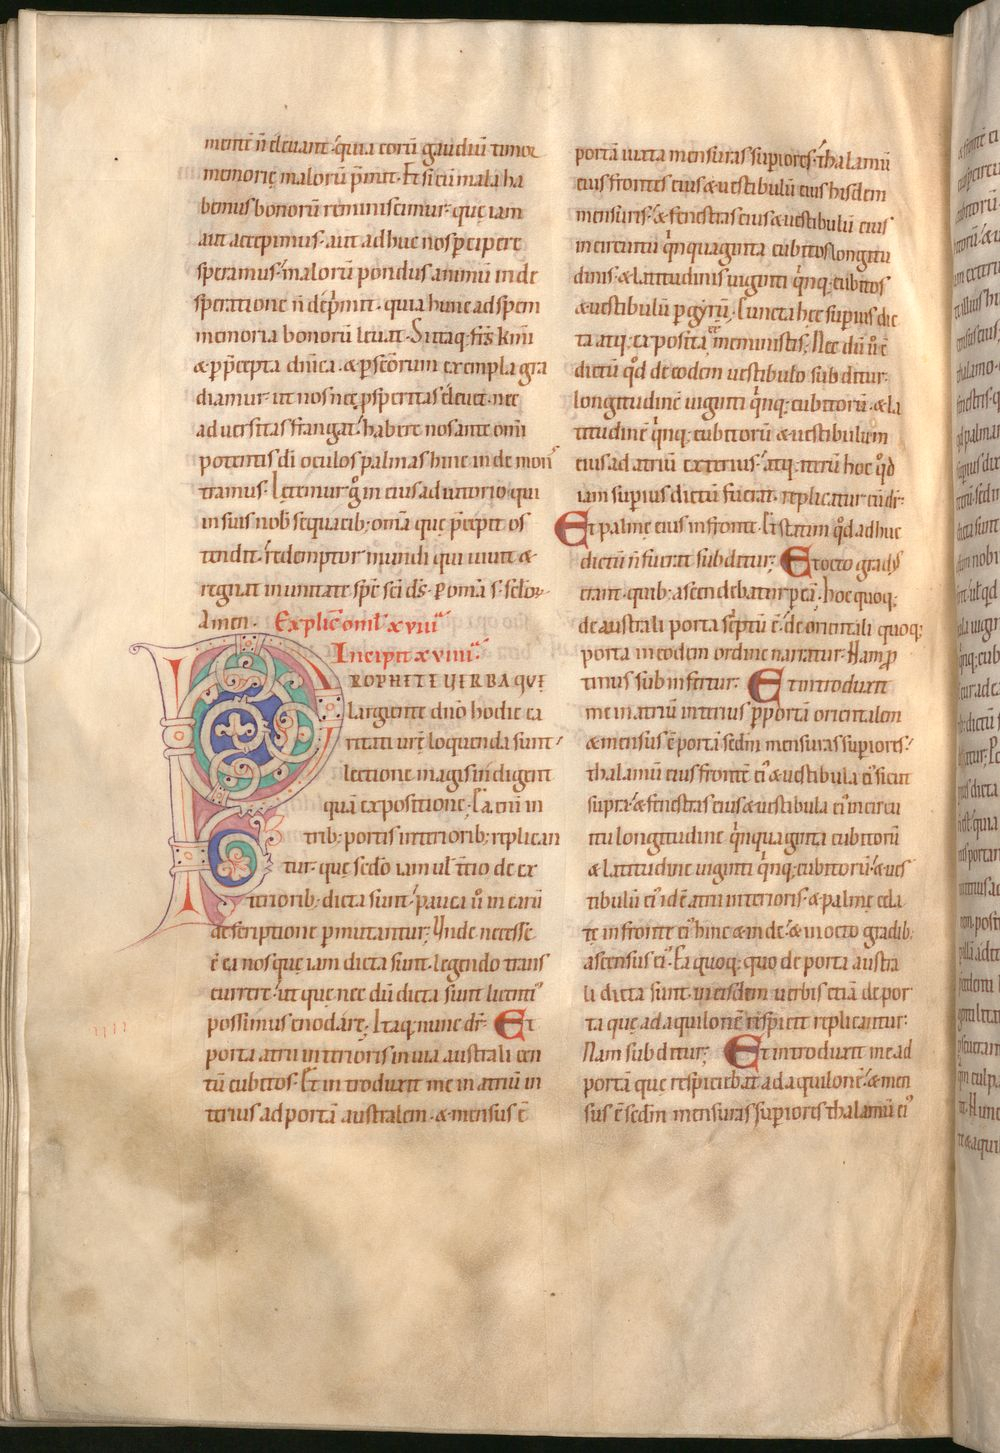 mentē n̄ eleuant· quia eorū gaudiū timor
memorię malorū p̄mit· Et sicū mala ha
bemus bonorū reminiscimur· que iam
aut accepimus· aut adhuc nos p̱cipere
speramus· malorū pondus animū in de
speratione n̄ dep̄mit· quia hunc ad spem
memoria bonorū leuat· Sitaq; frs̄ kmi
& p p̄cepta dn̄ica· & p scōrum exempla gra
diamur· ut nos nec p̱speritas eleuet· nec
aduersitas frangat· habere nos ante omi
potentis di oculos palmas hinc inde mon
tramus· Letemur g̊ in eius adiutorio qui
in suis nob̄ sequacib; om̄a que p̄cepit os
tendit· redemptor mundi qui uiuit &
regnat in unitate sp̄c sc̄i ds̄· p om̄a s· sclor̄·
Amen· Explic̄ omł xviii͛
Incipit xviiii͛·
PROPHETE VERBA QVE
largiente dn̄o hodie ca
ritati urę̄ loquenda sunt·
lectione magis indigent
quā expositione· Ea enī in
trib; portis interiorib; replican
tur· que sc̄do iam uł t̄tio de ex
teriorib; dicta sunt· pauca ū in earū
descriptione p̱mutantur; Unde necesse
ē ea nos que iam dicta sunt· legendo trans
currere· ut que nec dū dicta sunt licenti᾽
possimus enodare; Itaq; nunc dr̄· Et
porta atrii interioris in uia australi cen
tū cubitos· Et introduxit me in atriū in
terius ad portā australem· & mensus ē
portā iuxta mensuras sup̱iores· thalamū
eius frontes eius & uestibulū eius hisdem
mensuris· & fenestras eius & uestibulū eius
in circuitu q̇nquaginta cubitos longitu
dinis· & latitudinis uiginti q̇nq; cubitos
& uestibulū p gyrū; Cuncta hec sup̱ius dic
ta atq; exposita ee meministis; Nec dū ū ē
dictū qd̄ de eodem uestibulo subditur·
longitudinē uiginti q̇nq; cubitorū· & la
titudinē q̇nq; cubitorū & uestibulum
eius ad atriū exterius· atq; iterū hoc qd̄
iam sup̱ius dictū fuerat· replicatur cū dr̄·
Et palmę eius in fronte· Et statim qd̄ adhuc
dictū n̄ fuerat subditur; Et octo grad᾽
erant· quib; ascendebatur p eā· hoc quoq;
de australi porta sc̄ptū ē· de orientali quoq;
porta in eodem ordine narratur· Nam p
tinus subinfertur· Et introduxit
me in atriū interius p portā orientalem
& mensus ē portā sc̄dm mensuras sup̱iores·
thalamū eius frontē ei᾽ & uestibula ei᾽ sicut
supra· & fenestras eius & uestibula ei᾽ in circu
itu longitudine q̇nquaginta cubitorū
& latitudine uiginti q̇nq; cubitorū· & ues
tibulū ei᾽ id ē atrii interioris· & palmę cela
tę in fronte ei᾽ hinc & inde· & in octo gradib;
ascensus ei᾽· Ea quoq; quo de porta austra
li dicta sunt· in eisdem uerbis etiā de por
ta que ad aquilonē respicit replicantur·
Nam subditur; Et introduxit me ad
portā que respiciebat ad aquilonē· & men
sus ē sc̄dm mensuras sup̱iores thalamū ei᾽